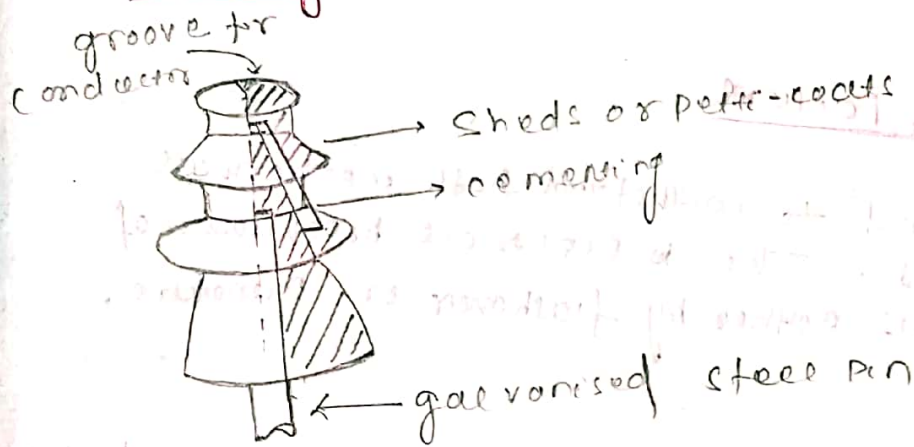 groove for
conductor
sheds or petti-coats
cementing
galvanised steel pin